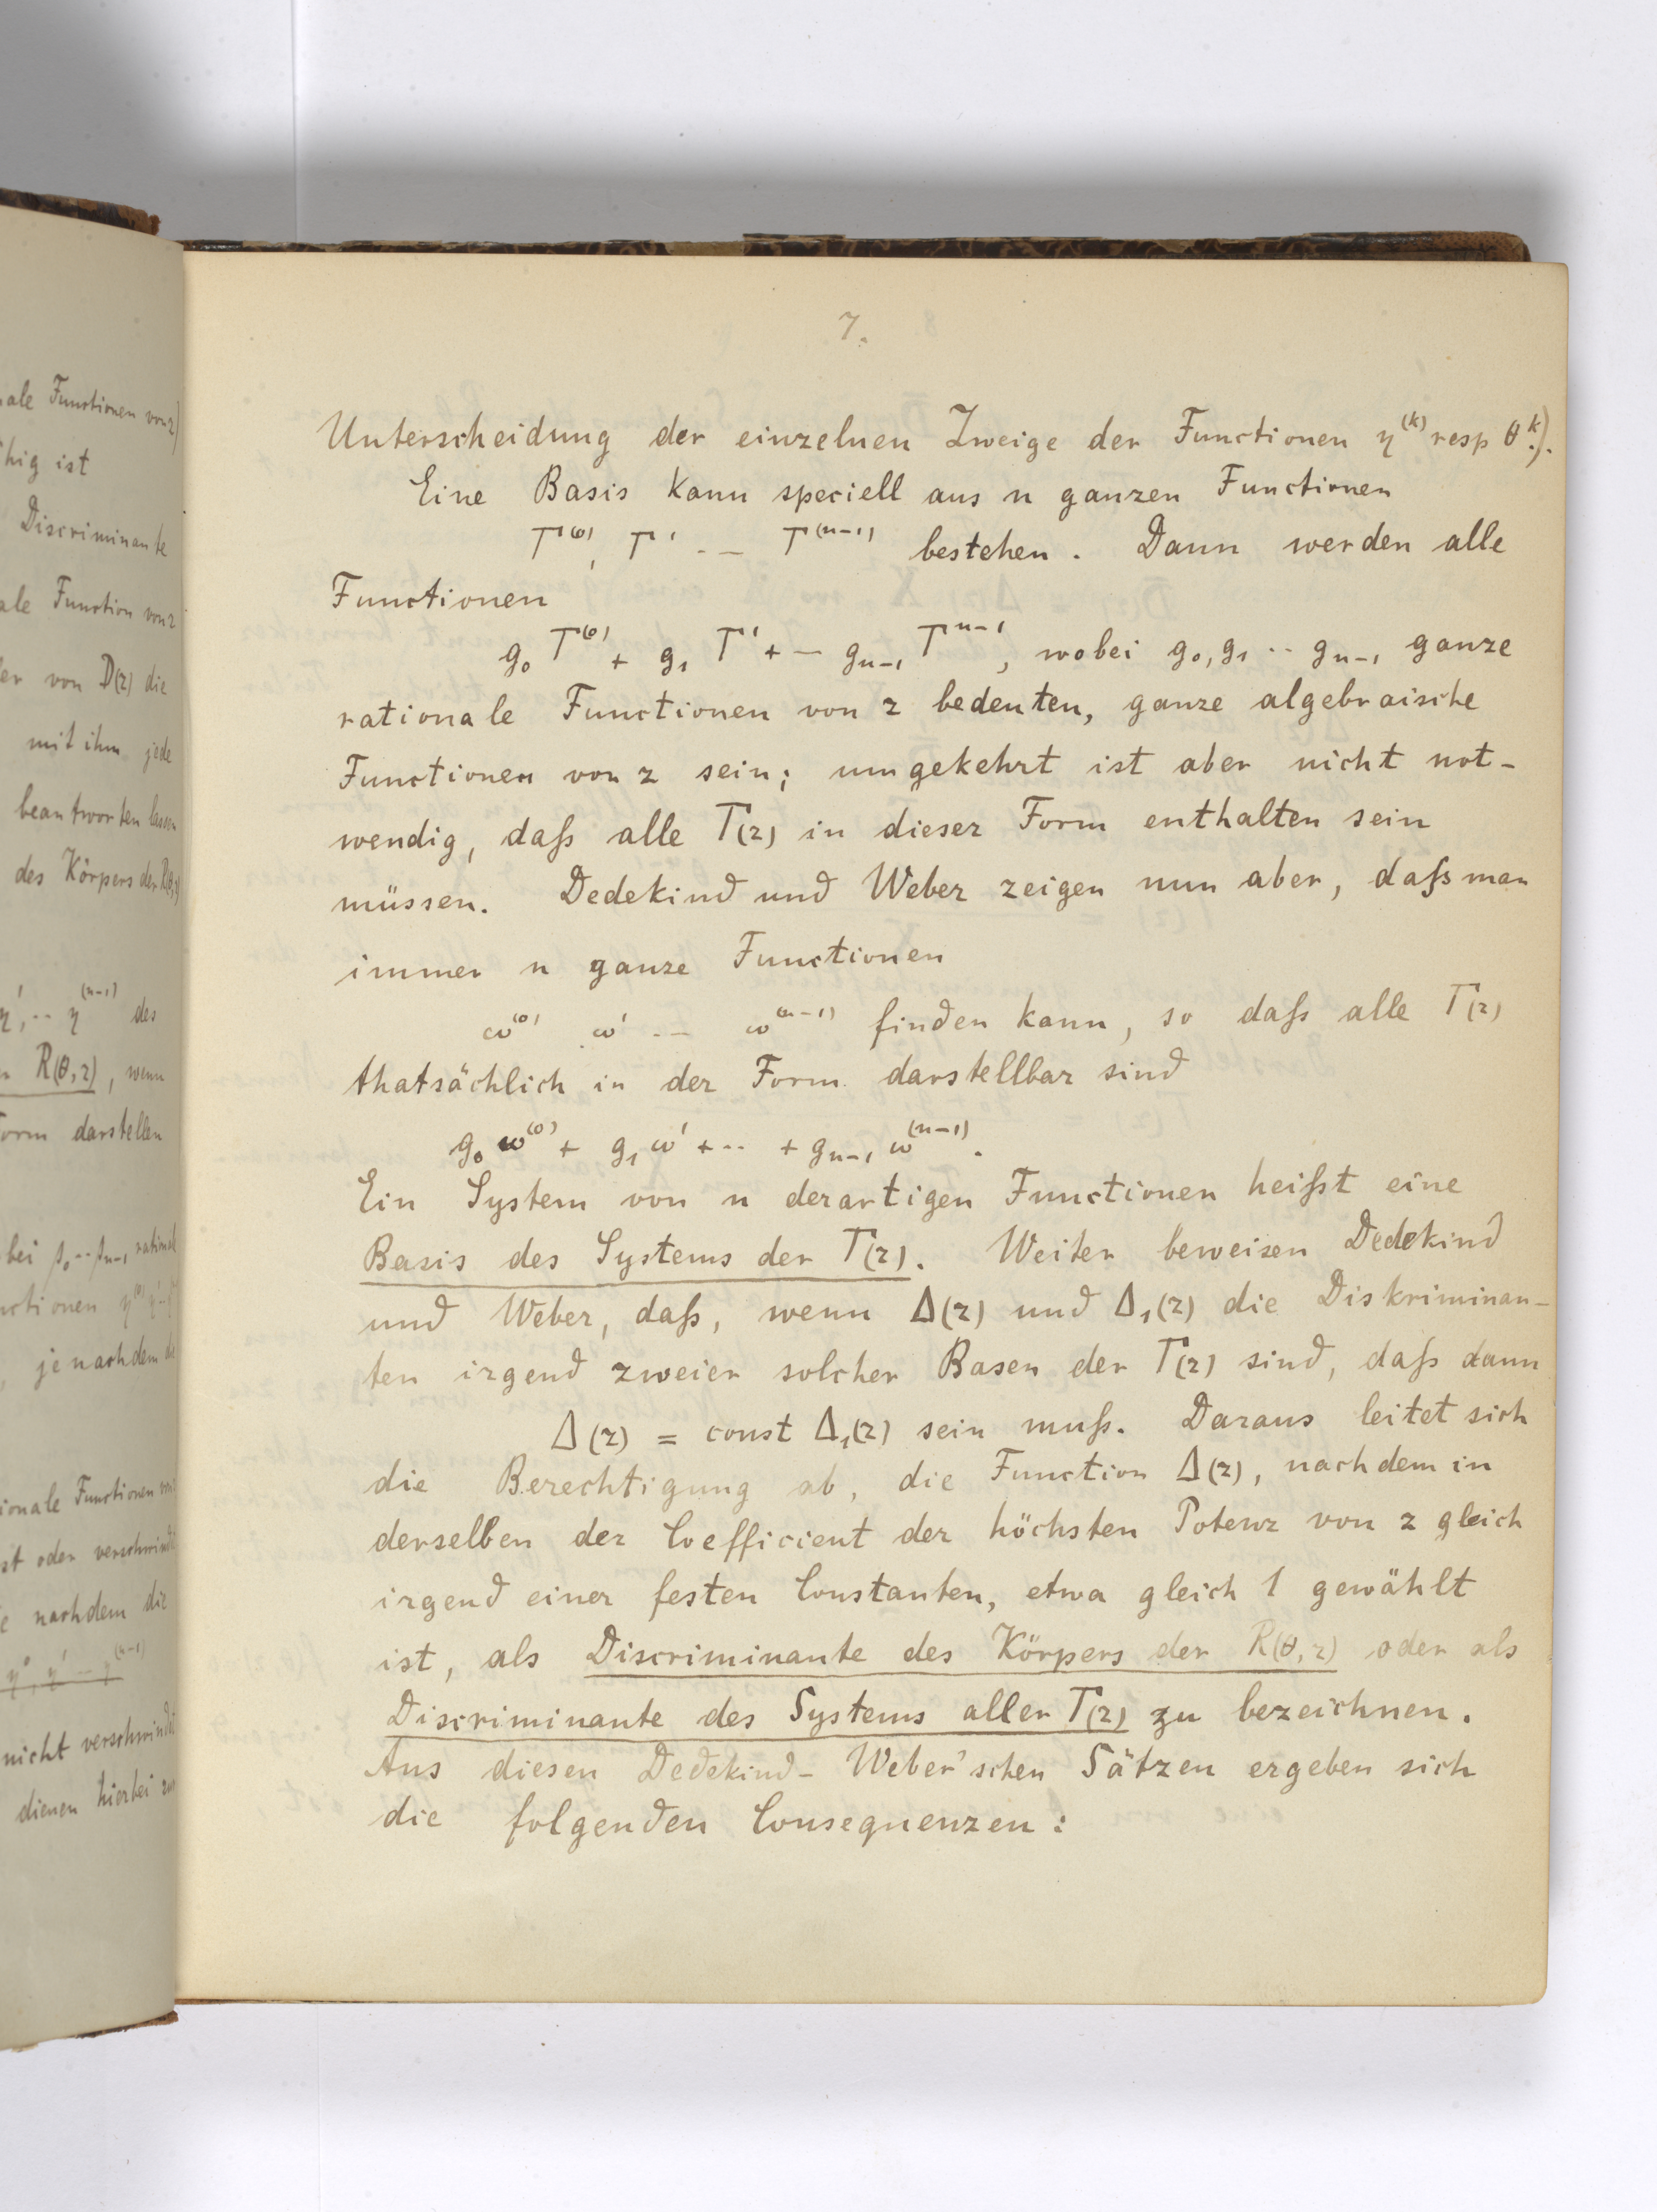 ale Functionen von z)
hig ist
Discriminante
ale Function von z
er von D(z) die
mit ihm jede
beantworten lassen
des Körpers der R(θ,z)
η', ·· η⁽ⁿ⁻¹⁾ des
R(θ,z), wenn
orm darstellen
bei ρ₀ ·· ρₙ₋₁ rational
ctionen
je nachdem die
ionale Functionen von
st oder verschwindet
nachdem die
nicht verschwindet
dienen hierbei zur
7.
Unterscheidung der einzelnen Zweige der Functionen η⁽ᵏ⁾ resp θᵏ.).
Eine Basis kann speciell aus n ganzen Functionen
T⁽⁰⁾, T' -- T⁽ⁿ⁻¹⁾ bestehen. Dann werden alle
Functionen
g₀ T⁽⁰⁾ + g₁ T' + -- gₙ₋₁ Tⁿ⁻¹, wobei g₀, g₁ ·· gₙ₋₁ ganze
rationale Functionen von z bedeuten, ganze algebraische
Functionen von z sein; umgekehrt ist aber nicht not-
wendig, daß alle T(z) in dieser Form enthalten sein
müssen. Dedekind und Weber zeigen nun aber, daß man
immer n ganze Functionen
ω⁽⁰⁾ ω' -- ω⁽ⁿ⁻¹⁾ finden kann, so daß alle T(z)
thatsächlich in der Form darstellbar sind
g₀ ω⁽⁰⁾ + g₁ ω' + ·· + gₙ₋₁ ω⁽ⁿ⁻¹⁾.
Ein System von n derartigen Functionen heißt eine
Basis des Systems der T(z). Weiter beweisen Dedekind
und Weber, daß, wenn Δ(z) und Δ₁(z) die Diskriminan-
ten irgend zweier solcher Basen der T(z) sind, daß dann
Δ(z) = const Δ₁(z) sein muß. Daraus leitet sich
die Berechtigung ab, die Function Δ(z), nachdem in
derselben der Coefficient der höchsten Potenz von z gleich
irgend einer festen Constanten, etwa gleich 1 gewählt
ist, als Discriminante des Körpers der R(θ,z) oder als
Discriminante des Systems aller T(z) zu bezeichnen.
Aus diesen Dedekind-Weber'schen Sätzen ergeben sich
die folgenden Consequenzen: